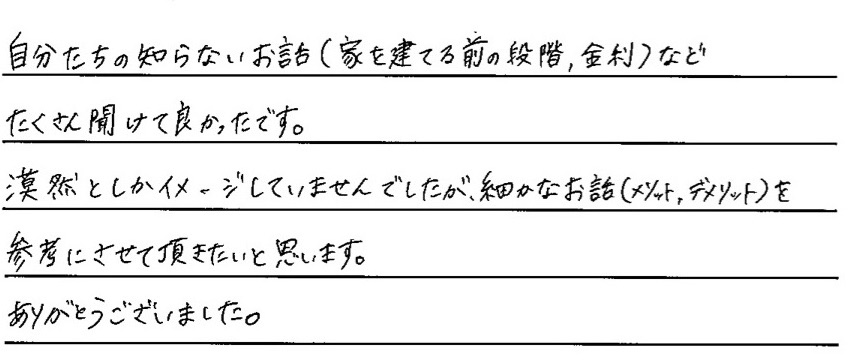 自分たちの知らないお話(家を建てる前の段階,金利)など
たくさん聞けて良かったです。
漠然としかイメージしていませんでしたが、細かなお話(メリット,デメリット)を
参考にさせて頂きたいと思います。
ありがとうございました。